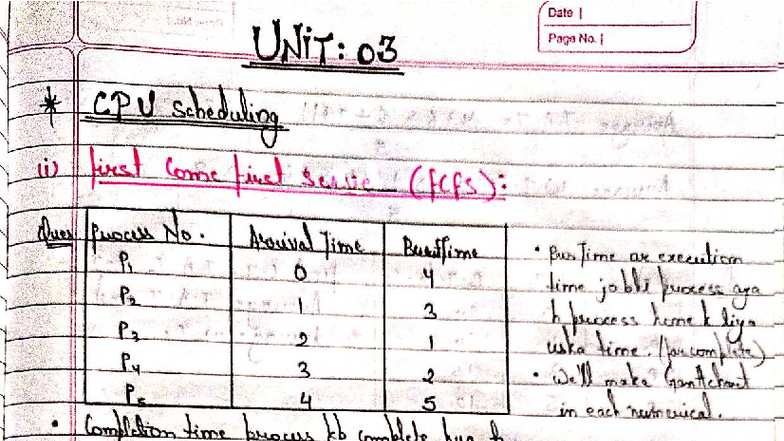 Date
Page No.
UNIT: 03
* CPU Scheduling
(i) first Come first Serve (fcfs):
Ques Process No. Arrival Time Burst Time
P1 0 4
P2 1 3
P3 2 1
P4 3 2
P5 4 5
• Bus Time or execution
time jobhi process aya
h process hone k liye
uska time. (for complete)
• We'll make Gantt chart
in each numerical.
• Completion time process kb complete hua h